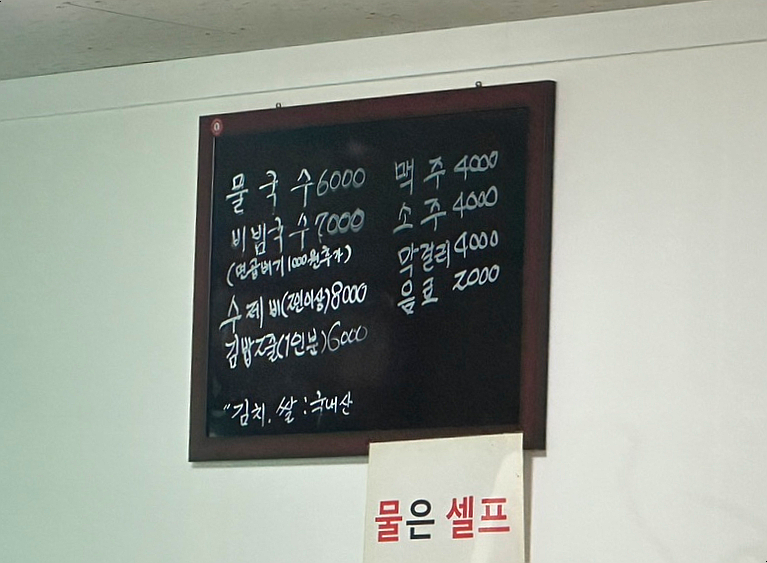 물국수 6000
비빔국수 7000
(면곱빼기 1000원추가)
수제비(2인이상) 8000
김밥2줄(1인분) 6000
"김치, 쌀 : 국내산
맥주 4000
소주 4000
막걸리 4000
음료 2000
물은 셀프